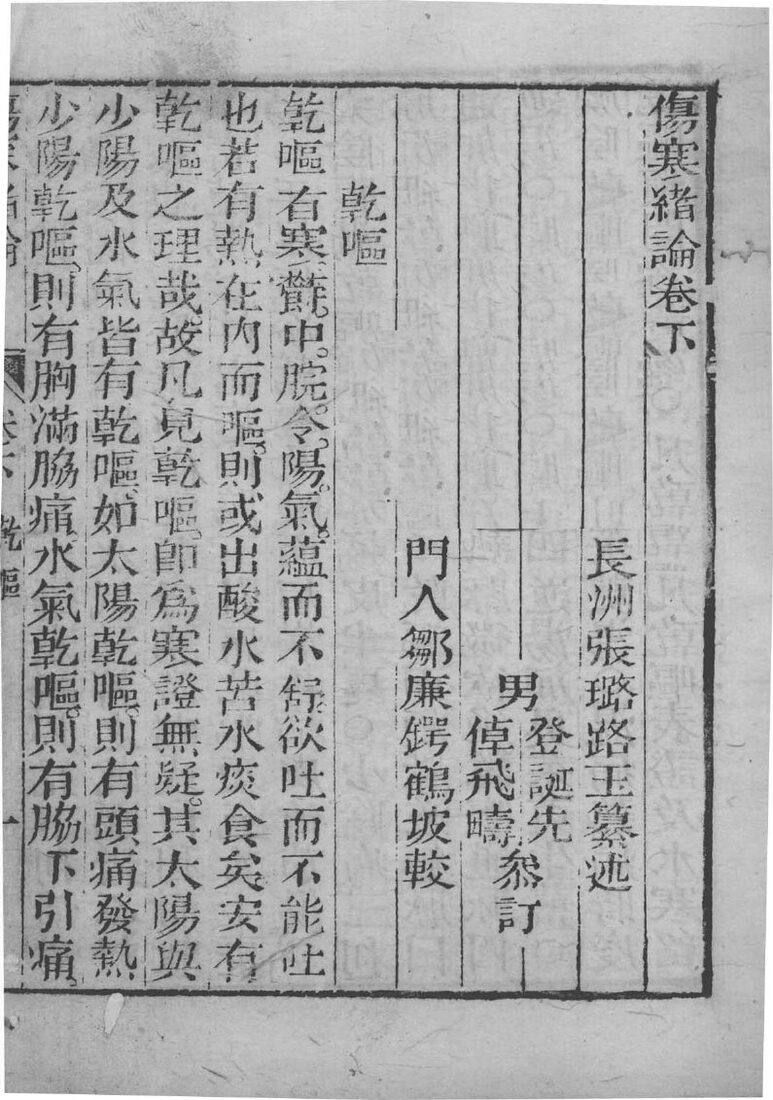 傷寒緒論卷下
長洲張璐路玉纂述
男登誕先
倬飛疇叅訂
門人鄒廉鍔鶴坡較
乾嘔
乾嘔有寒鬱。中。脘。令。陽。氣。蘊而不舒。欲吐而不能吐
也若有熱在內而嘔。則或出酸水苦水痰食矣。安有
乾嘔之理哉。故凡見乾嘔。卽爲寒證無疑。其太陽與
少陽及水氣皆有乾嘔。如太陽乾嘔。則有頭痛發熱
少陽乾嘔。則有胸滿脇痛。水氣乾嘔。則有脇下引痛。
傷寒緒論 卷下 乾嘔 一